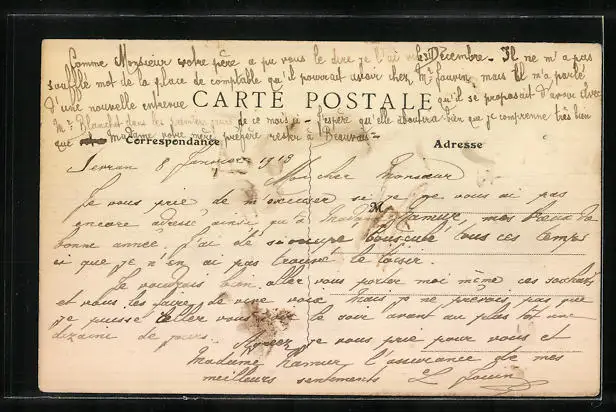 Comme Monsieur votre père a pu vous le dire je l'ai vu Décembre. Il ne m'a pas
soufflé mot de la place de comptable qu'il pourrait avoir chez Mr mais il m'a parlé
d'une nouvelle entrevue qu'il se proposait d'avoir avec
CARTE POSTALE
Mr Blanchet dans les jours de ce mois ci - J'espère qu'elle aboutira bien que je comprenne très bien
que Madame votre mère préfère rester à Beauvais -
Correspondance
Adresse
Sevran 8 Janvier 1913
Mon cher Monsieur
Je vous prie de m'excuser si je ne vous ai pas
M
encore adressé ainsi qu'à Madame Hamur mes vœux de
bonne année. J'ai été si bousculé tous ces temps
ci que je n'en ai pas trouvé le loisir.
Je voudrais bien aller vous porter moi même ces souhaits
et vous les faire de vive voix mais je ne prévois pas que
je puisse aller vous voir le soir avant au plus tôt une
dizaine de jours. Agréez je vous prie pour vous et
Madame Hamur l'assurance de mes
meilleurs sentiments